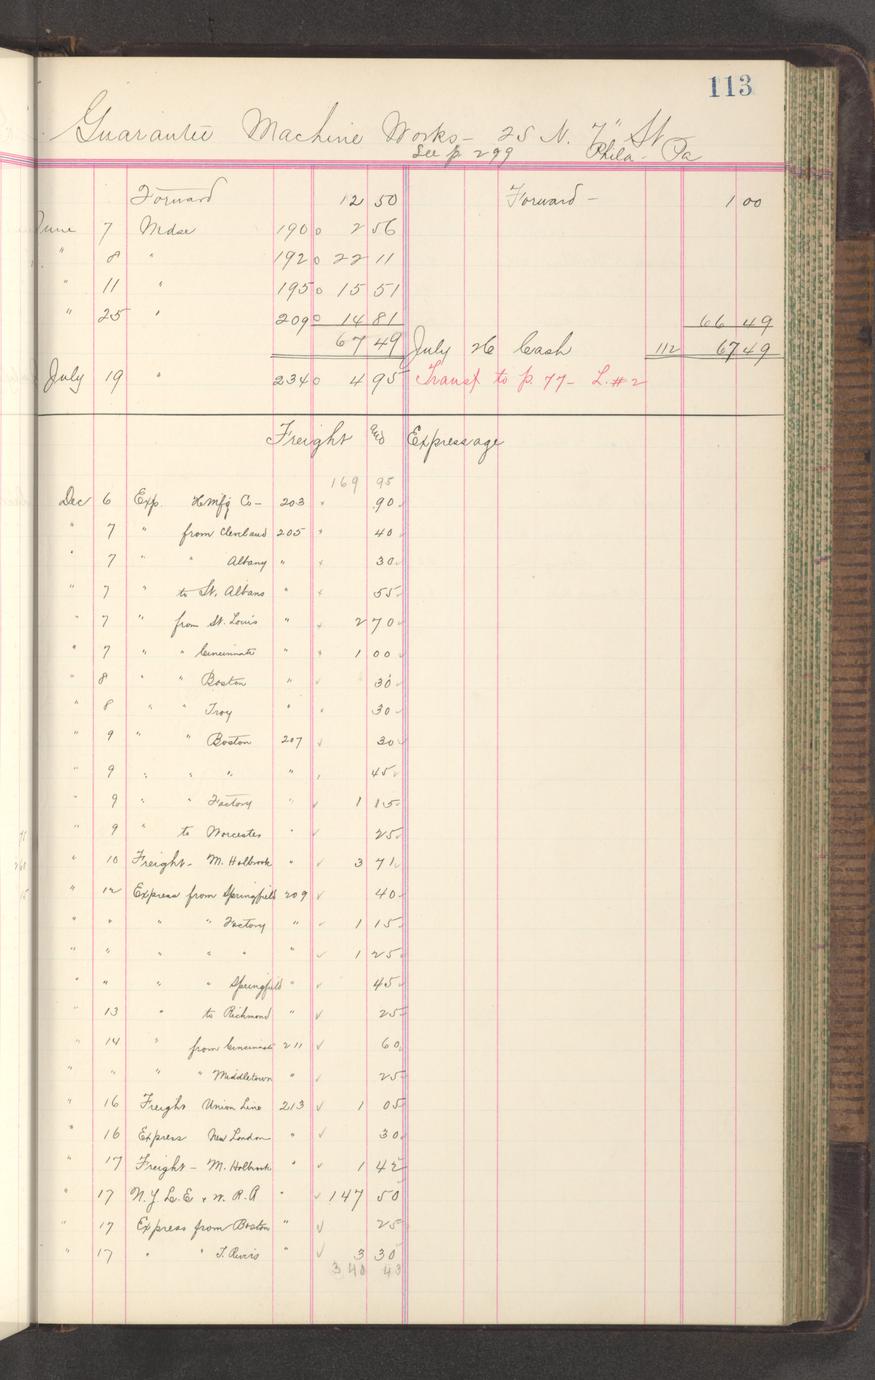 113
Guarantee Machine Works - 25 N. 7" St
See p. 299 Phila - Pa
Forward 12 50 Forward - 1 00
June 7 Mdse 190 0 2 56
" 8 " 192 0 22 11
" 11 " 195 0 15 51
" 25 " 209 0 14 81 66 49
67 49 July 26 Cash 112 67 49
July 19 " 234 0 4 95 Transf to p. 77 - L. #2
Freight and Expressage
169 95
Dec 6 Exp. Mfg Co - 203 90
" 7 " from Cleveland 205 40
" 7 " " Albany " 30
" 7 " to St. Albans " 55
" 7 " from St. Louis " 2 70
" 7 " " Cincinnati " 1 00
" 8 " " Boston " ✓ 30
" 8 " " Troy " 30
" 9 " " Boston 207 ✓ 30
" 9 " " " " 45
" 9 " " Factory " ✓ 1 15
" 9 " to Worcester " ✓ 25
" 10 Freight - M. Holbrook " ✓ 3 71
" 12 Express from Springfield 209 ✓ 40
" " " " Factory " ✓ 1 15
" " " " " " ✓ 1 25
" " " " Springfield " ✓ 45
" 13 " to Richmond " ✓ 25
" 14 " from Cincinnati 211 ✓ 60
" " " " Middletown " ✓ 25
" 16 Freight Union Line 213 ✓ 1 05
" 16 Express New London " ✓ 30
" 17 Freight - M. Holbrook " ✓ 1 42
" 17 N.Y. L.E & W. R.R " ✓ 147 50
" 17 Express from Boston " ✓ 25
" 17 " " " ✓ 3 30
340 43